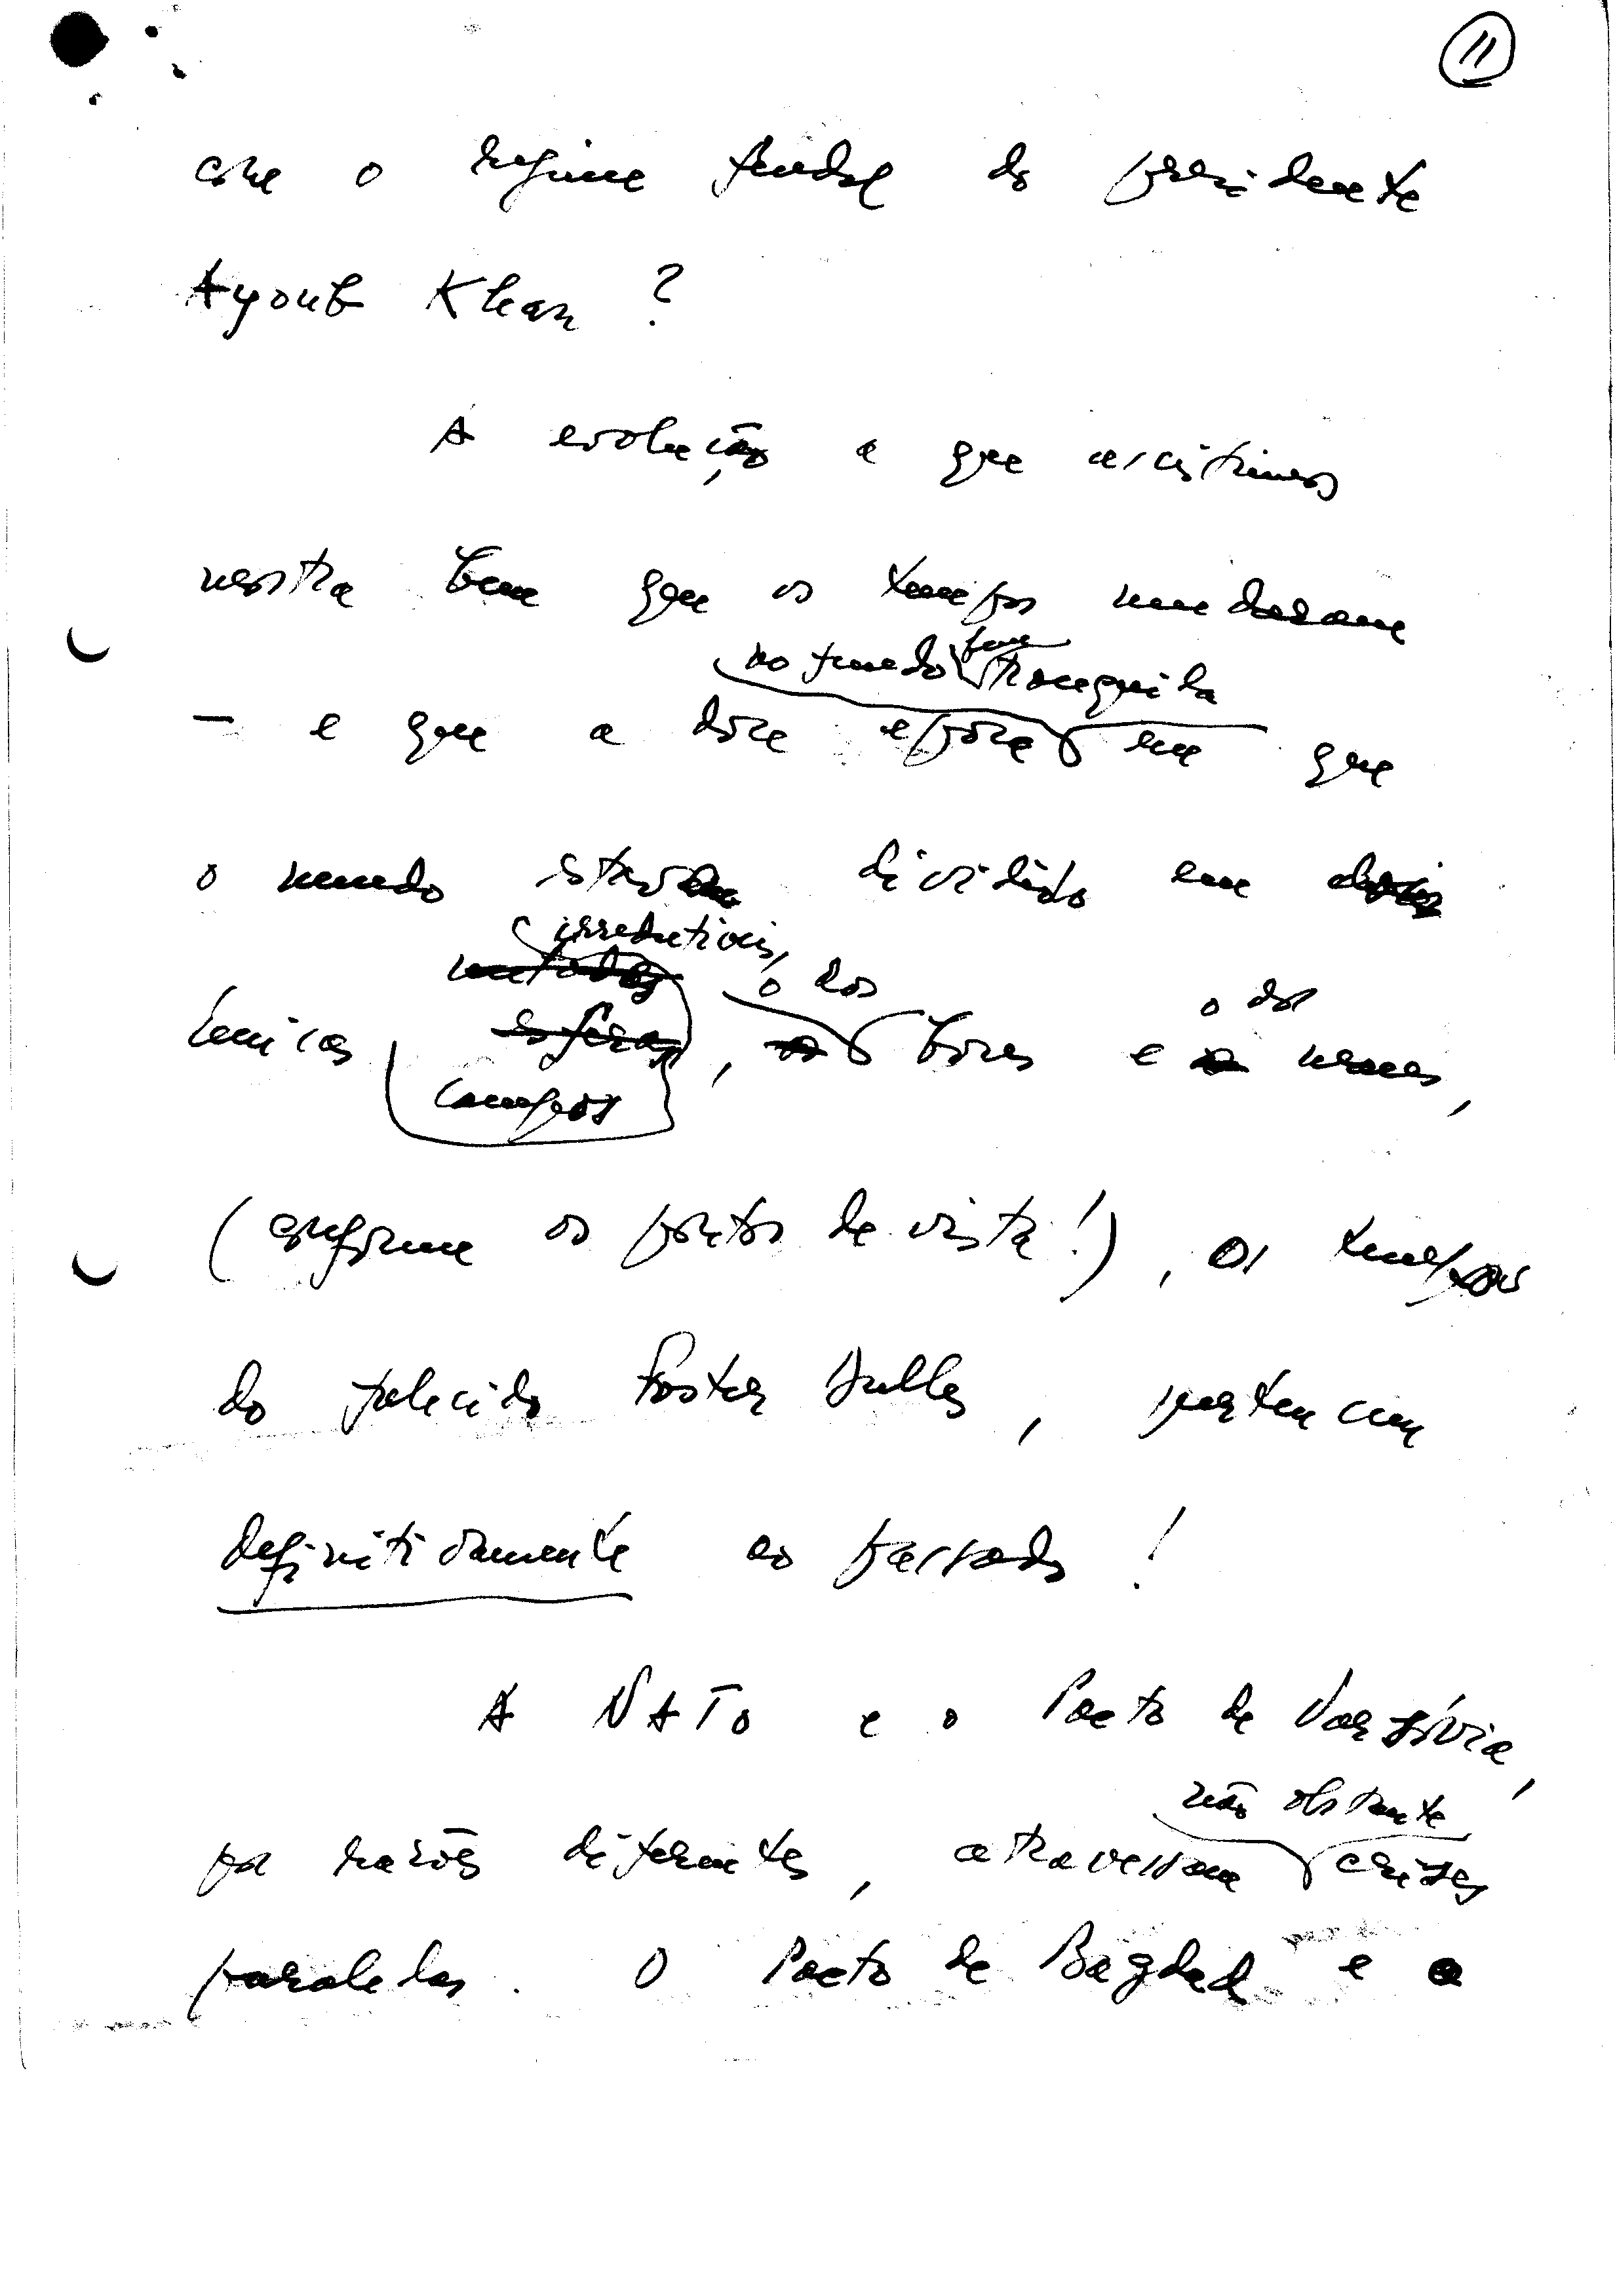 11
com o regime feudal do presidente
Ayoub Khan ?
A evolução a que assistimos
mostra bem que os tempos mudaram
no fundo bem tranquila
— e que a doce época em que
o mundo estava dividido em dois
irredutiveis,
metades o dos o dos
únicos esferas, os bons e os maus,
campos
(conforme os pontos de vista!), os tempos
do falecido Foster Dulles, pertencem
definitivamente ao passado !
A NATO e o Pacto de Varsóvia,
não obstante
por razões diferentes, atravessam crises
paralelas. O Pacto de Bagdad e a